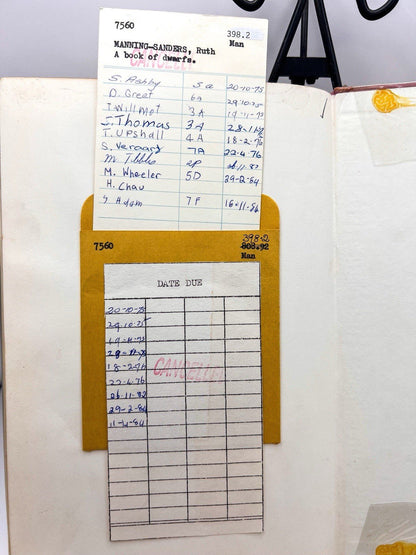 7560
398.2
Man
MANNING-SANDERS, Ruth
A book of dwarfs.
CANCELLED
S. 5a 20-10-75
D. Great 6a 29.10.75
T. Willmot 3A 19-11-75
J. Thomas 3A
T. Upshall 4A 18-2-76
S. 7A 22-4-76
M. Tibbles 26.11.82
M. Wheeler 5D 29-2-84
H. Chau
S Adam 7F 16-11-86
7560
398.2
808.92
Man
DATE DUE
20-10-75
29.10.75
19-11-75
18-2-76
22-4-76
26.11.82
29-2-84
11-4-84
CANCELLED